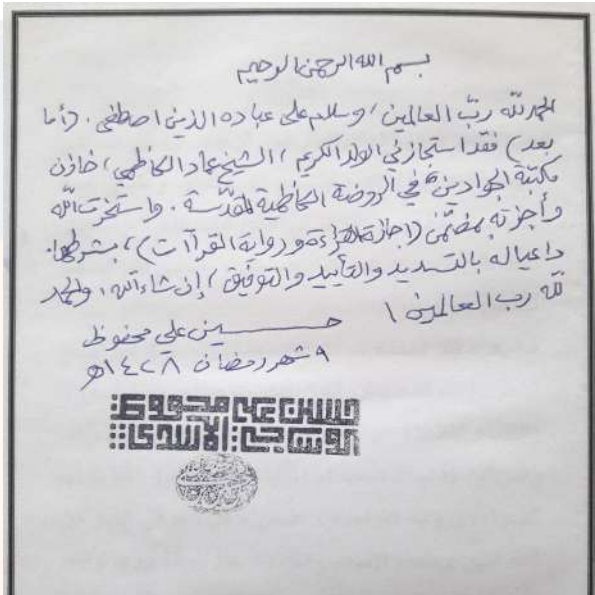 بسم الله الرحمن الرحيم
الحمد لله ربّ العالمين، وسلام على عباده الذين اصطفى. (أما
بعد) فقد استجازني الولد الكريم، الشيخ عماد الكاظمي، خازن
مكتبة الجوادين في الروضة الكاظمية المقدّسة. واستخرت الله
وأجزته بمضمّن (إجازة القراءة ورواية القراآت)، بشرطها.
داعيا له بالتسديد والتأييد والتوفيق، إن شاء الله، والحمد
لله رب العالمين
حسين علي محفوظ
٩ شهر رمضان ١٤٢٨هـ
حسين علي محفوظ
الوشاحي الأسدي